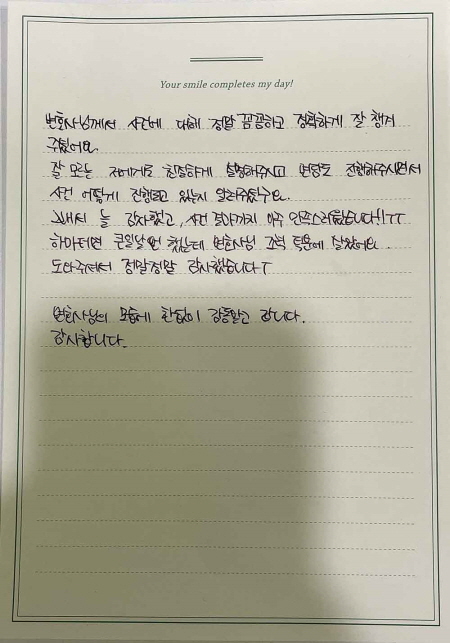 Your smile completes my day!
변호사님께서 사건에 대해 정말 꼼꼼하고 정확하게 잘 챙겨
주셨어요.
잘 모르는 저에게도 친절하게 설명해주시고 변당도 진행해주시면서
사건 어떻게 진행되고 있는지 알려주셨구요.
그래서 늘 감사했고, 사건 결과까지 아주 만족스러웠습니다!! ㅜㅜ
하마터면 큰일날뻔 했는데 변호사님 고덕 덕분에 살았어요.
도와주셔서 정말정말 감사했습니다ㅜ
변호사님의 모습에 한없이 감동받고 갑니다.
감사합니다.